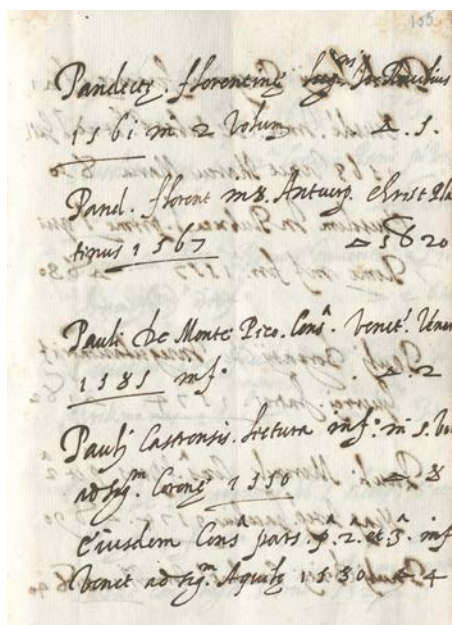 105
Pandectę. florentinę
1561 in 2 Volum △. 5.
Pand. florent in 8. Antuerp. Christ Pla
tinus 1567 △ 5 6 20
Pauli de Monte Pico. Consᵃ. Venetʲ. Venet
1585 in fᵒ. △. 2
Paulj Castrensis. lectura in fᵒ. in 5. Vo
ad sigᵐ. Coronę 1550 △ 8
Eiusdem Consᵃ pars. pᵃ. 2. et 3ᵃ. in f
Venet ad sigᵐ. Aquilę 1580 △. 4